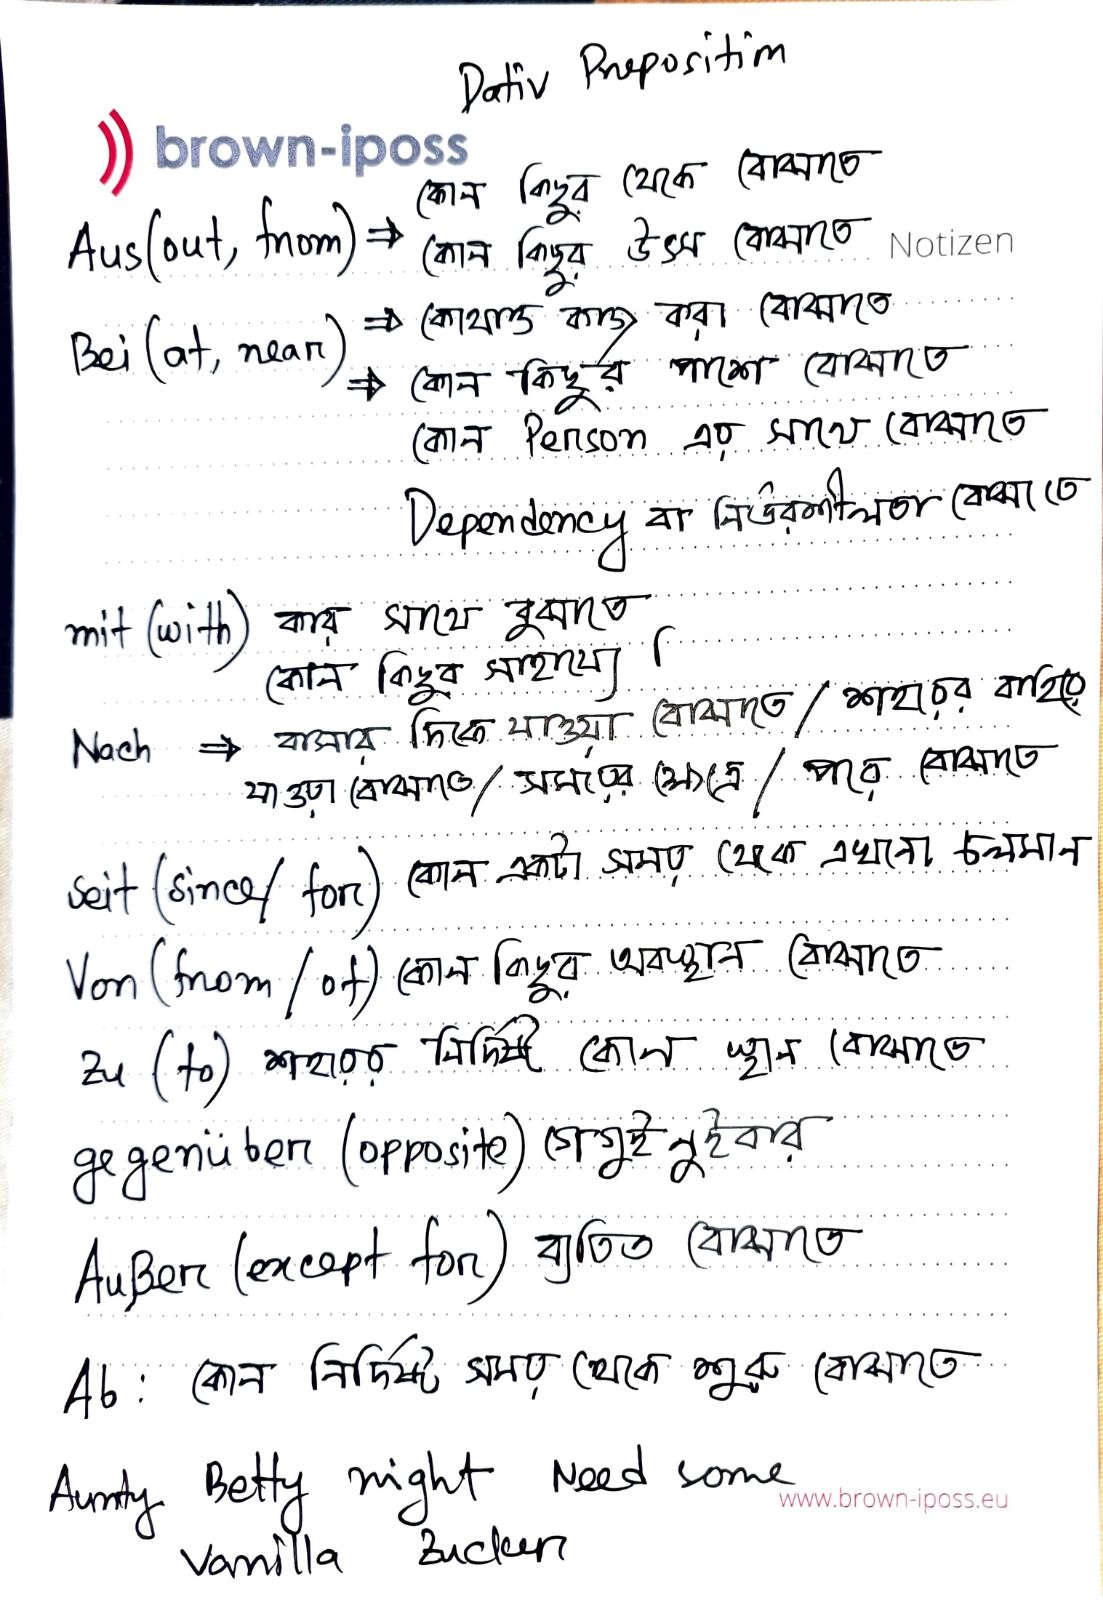 Dativ Preposition
brown-iposs
কোন কিছুর থেকে বোঝাতে
Aus (out, from) ⇒ কোন কিছুর উৎস বোঝাতে
Notizen
Bei (at, near) ⇒ কোথাও কাজ করা বোঝাতে
⇒ কোন কিছুর পাশে বোঝাতে
কোন Person এর সাথে বোঝাতে
Dependency বা নির্ভরশীলতা বোঝাতে
mit (with) কার সাথে বুঝাতে
কোন কিছুর সাহায্যে
Nach ⇒ বাসার দিকে যাওয়া বোঝাতে / শহরের বাহিরে
যাওয়া বোঝাতে / সময়ের ক্ষেত্রে / পরে বোঝাতে
seit (since/ for) কোন একটা সময় থেকে এখনো চলমান
Von (from / of) কোন কিছুর অবস্থান বোঝাতে
zu (to) শহরের নির্দিষ্ট কোন স্থান বোঝাতে
gegenüber (opposite) গেগুইনুইবার
Außer (except for) ব্যতিত বোঝাতে
Ab: কোন নির্দিষ্ট সময় থেকে শুরু বোঝাতে
Aunty Betty might Need some
www.brown-iposs.eu
Vanilla Zucker